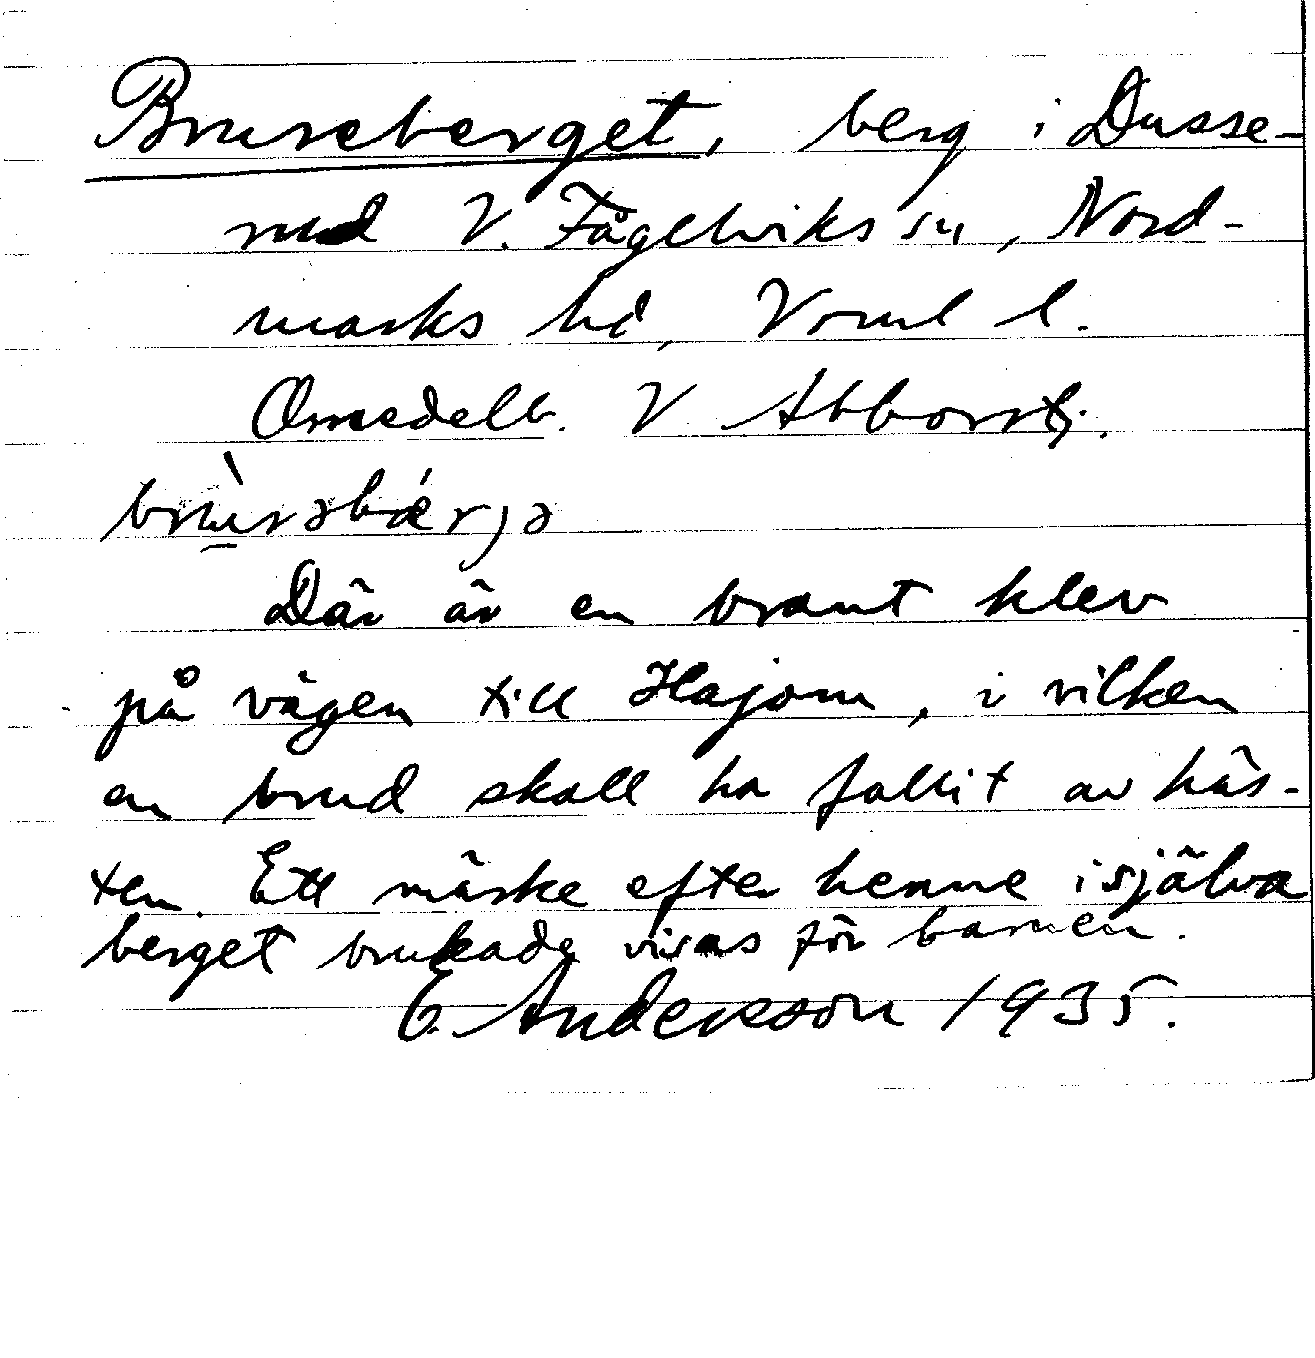 Brureberget, berg i Dusse-
rud V. Fågelviks sn, Nord-
marks hd, Vrml l.
Omedelb. V Abborrtj.
brùrəbǽrjə
Där är en brant klev
på vägen till Hajom, i vilken
en brud skall ha fallit av häs-
ten. Ett märke efter henne i själva
berget brukade visas för barnen.
E. Andersson 1935.